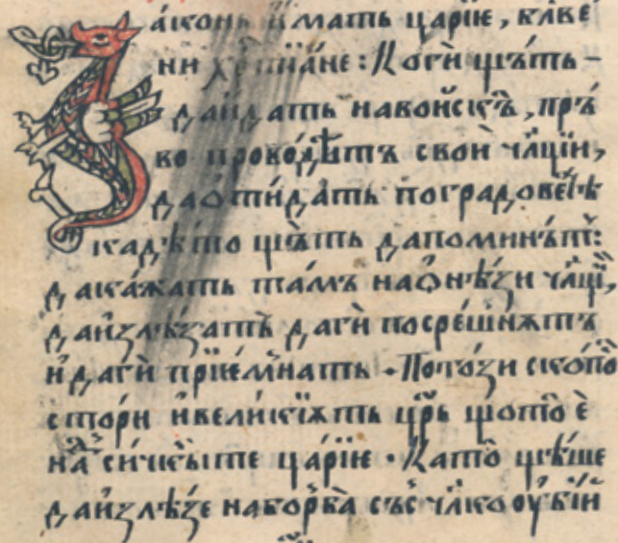 Зако́нъ и҆́матъ ца́рїе, бл҃ве́
ни хр҃тїа́не: Ко́гѝ щѫ́тъ
да и҆́датъ на войскѫ̀, пръ́
во проводѣ́тъ свои̑ чл҃ци́и,
да ѿи́датъ по градове́тѣ
каде́то щѫ́тъ да помѝнѫтъ:
да ка́жатъ та́мъ на ѻ҆нѣ́зи чл҃ци,
да и҆злѣ́затъ да гѝ посре́щнѫтъ
и҆ да гѝ прїе́мнатъ. По то́зи ско́по
сторѝ и҆ вели́кїѧтъ цр҃ь що то̀ є҆̀
на̀ си́чкыте ца́рїе. Като̀ щѣ́ше
да и҆злѣ́зе на борба̀ със чл҃коѹбі́й